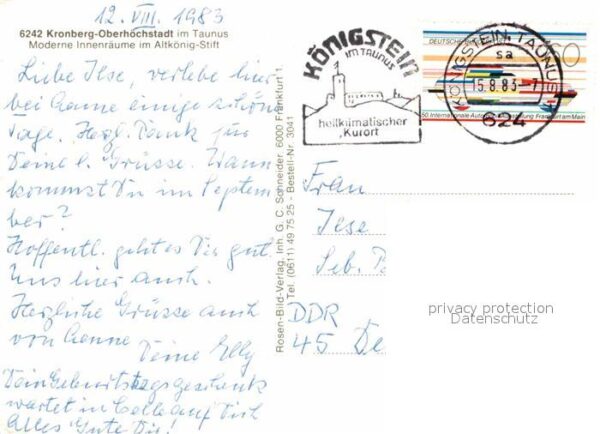 12. VIII. 1983
6242 Kronberg-Oberhöchstadt im Taunus
Moderne Innenräume im Altkönig-Stift
Liebe Ilse, verlebe hier
bei Hanne einige schöne
Tage. Herzl. Dank für
Deine l. Grüsse. Wann
kommst Du im Septem
ber?
Hoffentl. geht es Dir gut.
Uns hier auch.
Herzliche Grüsse auch
von Hanne
Deine Elly
Dein Geburtstagsgeschenk
wartet in Celle auf Dich
Alles Gute Dir!
Rosen-Bild-Verlag, Inh. G. C. Schneider, 6000 Frankfurt 1
Tel. (0611) 49 75 25 - Bestell-Nr. 3041
KÖNIGSTEIN
IM TAUNUS
heilklimatischer
Kurort
DEUTSCHE
60
50. Internationale Automobil-Ausstellung Frankfurt am Main
KÖNIGSTEIN, TAUNUS 1
sa
15.8.83-7
624
Frau
Ilse
Seb.
DDR
45 De
privacy protection
Datenschutz